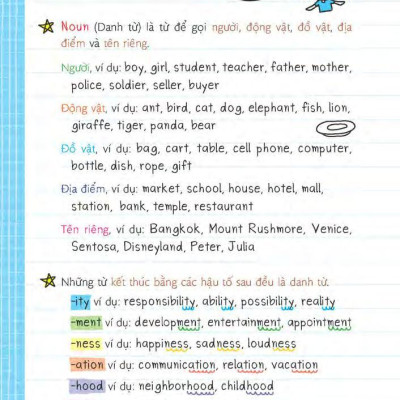 Noun (Danh từ) là từ để gọi người, động vật, đồ vật, địa
điểm và tên riêng.
Người, ví dụ: boy, girl, student, teacher, father, mother,
police, soldier, seller, buyer
Động vật, ví dụ: ant, bird, cat, dog, elephant, fish, lion,
giraffe, tiger, panda, bear
Đồ vật, ví dụ: bag, cart, table, cell phone, computer,
bottle, dish, rope, gift
Địa điểm, ví dụ: market, school, house, hotel, mall,
station, bank, temple, restaurant
Tên riêng, ví dụ: Bangkok, Mount Rushmore, Venice,
Sentosa, Disneyland, Peter, Julia
Những từ kết thúc bằng các hậu tố sau đều là danh từ.
-ity ví dụ: responsibility, ability, possibility, reality
-ment ví dụ: development, entertainment, appointment
-ness ví dụ: happiness, sadness, loudness
-ation ví dụ: communication, relation, vacation
-hood ví dụ: neighborhood, childhood